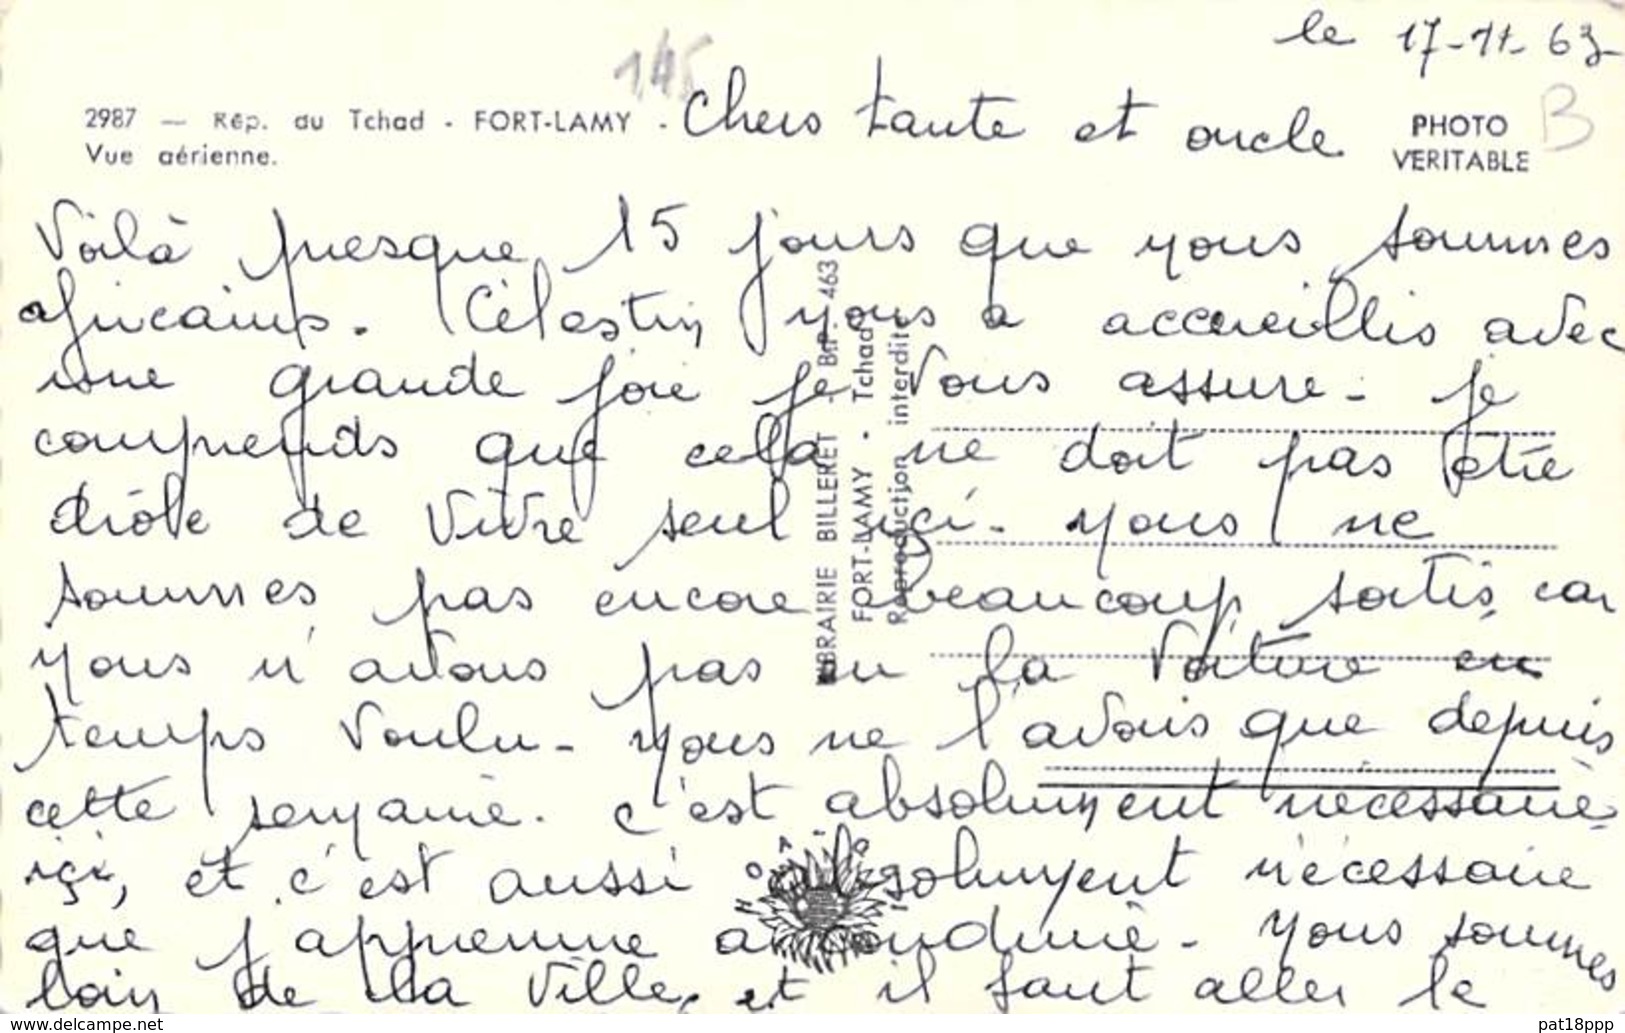 le 17-11-63
145
2987 — Rép. du Tchad - FORT-LAMY - Chers tante et oncle
Vue aérienne.
PHOTO
VERITABLE
B
Voilà presque 15 jours que nous sommes
africains. Célestin nous a accueillis avec
une grande joie je vous assure. je
comprends que cela ne doit pas être
drôle de vivre seul ici. nous ne
sommes pas encore beaucoup sortis, car
nous n'avons pas eu la voiture en
temps voulu. nous ne l'avons que depuis
cette semaine. c'est absolument nécessaire
ici, et c'est aussi absolument nécessaire
que j'apprenne à conduire. nous sommes
loin de la ville, et il faut aller le
LIBRAIRIE BILLERET - B.P. 463
FORT-LAMY - Tchad
Reproduction interdite
HOA-QUI
delcampe.net
pat18ppp